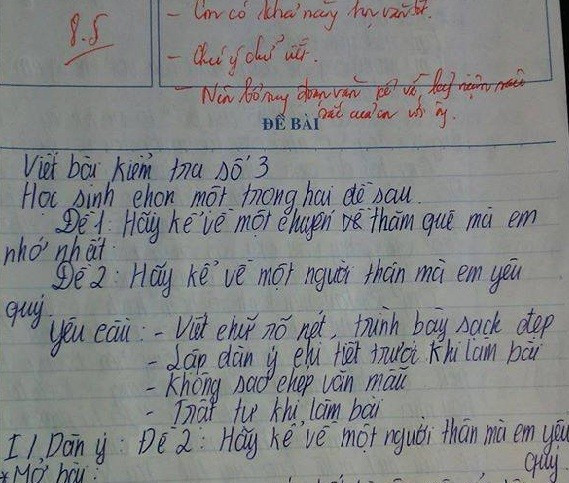 8.5
- Con có khả năng tự viết.
- Chú ý chữ viết.
- Nên bổ sung đoạn văn kể về
của con với ông.
ĐỀ BÀI
Viết bài kiểm tra số 3
Học sinh chọn một trong hai đề sau.
Đề 1: Hãy kể về một chuyến về thăm quê mà em
nhớ nhất.
Đề 2: Hãy kể về một người thân mà em yêu
quý.
Yêu cầu: - Viết chữ rõ nét, trình bày sạch đẹp
- Lập dàn ý chi tiết trước khi làm bài
- Không sao chép văn mẫu
- Trật tự khi làm bài
I / Dàn ý: Đề 2: Hãy kể về một người thân mà em yêu
quý.
* Mở bài: